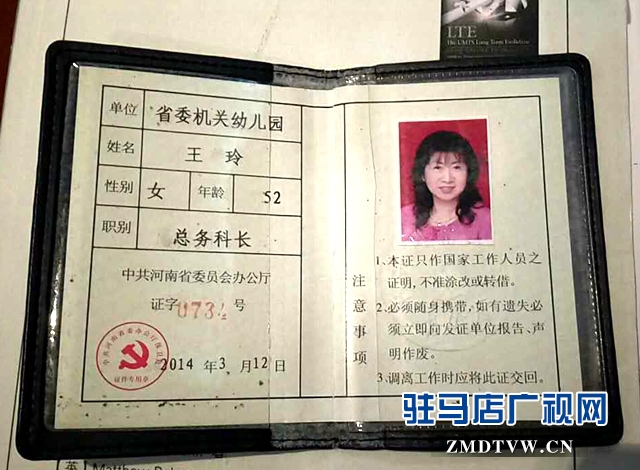 LTE
The UMTS Long Term Evolution
单位 省委机关幼儿园
姓名 王玲
性别 女 年龄 52
职别 总务科长
中共河南省委员会办公厅
证字 0734 号
证件专用章
2014 年 3 月 12 日
注意事项
1、本证只作国家工作人员之
证明,不准涂改或转借。
2、必须随身携带,如有遗失必
须立即向发证单位报告、声
明作废。
3、调离工作时应将此证交回。
驻马店广视网
ZMDTVW.CN
英